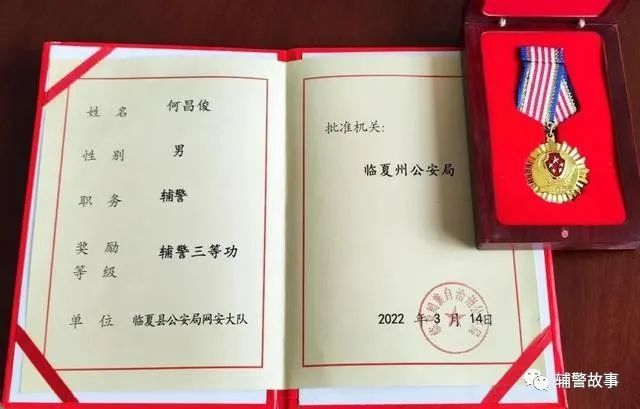 姓名 何昌俊
性别 男
职务 辅警
奖励等级 辅警三等功
单位 临夏县公安局网安大队
批准机关:
临夏州公安局
2022 年 3 月 14日
辅警故事